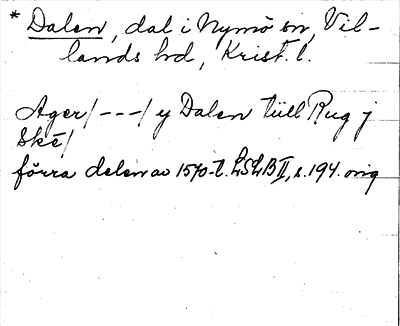 * Dalen, dal i Nymö sn, Vil-
lands hd, Krist. l.
Ager/---/ y Dalen tüll Rug j
Ské/
förra delen av 1570-t. LSLB II, s. 194. orig